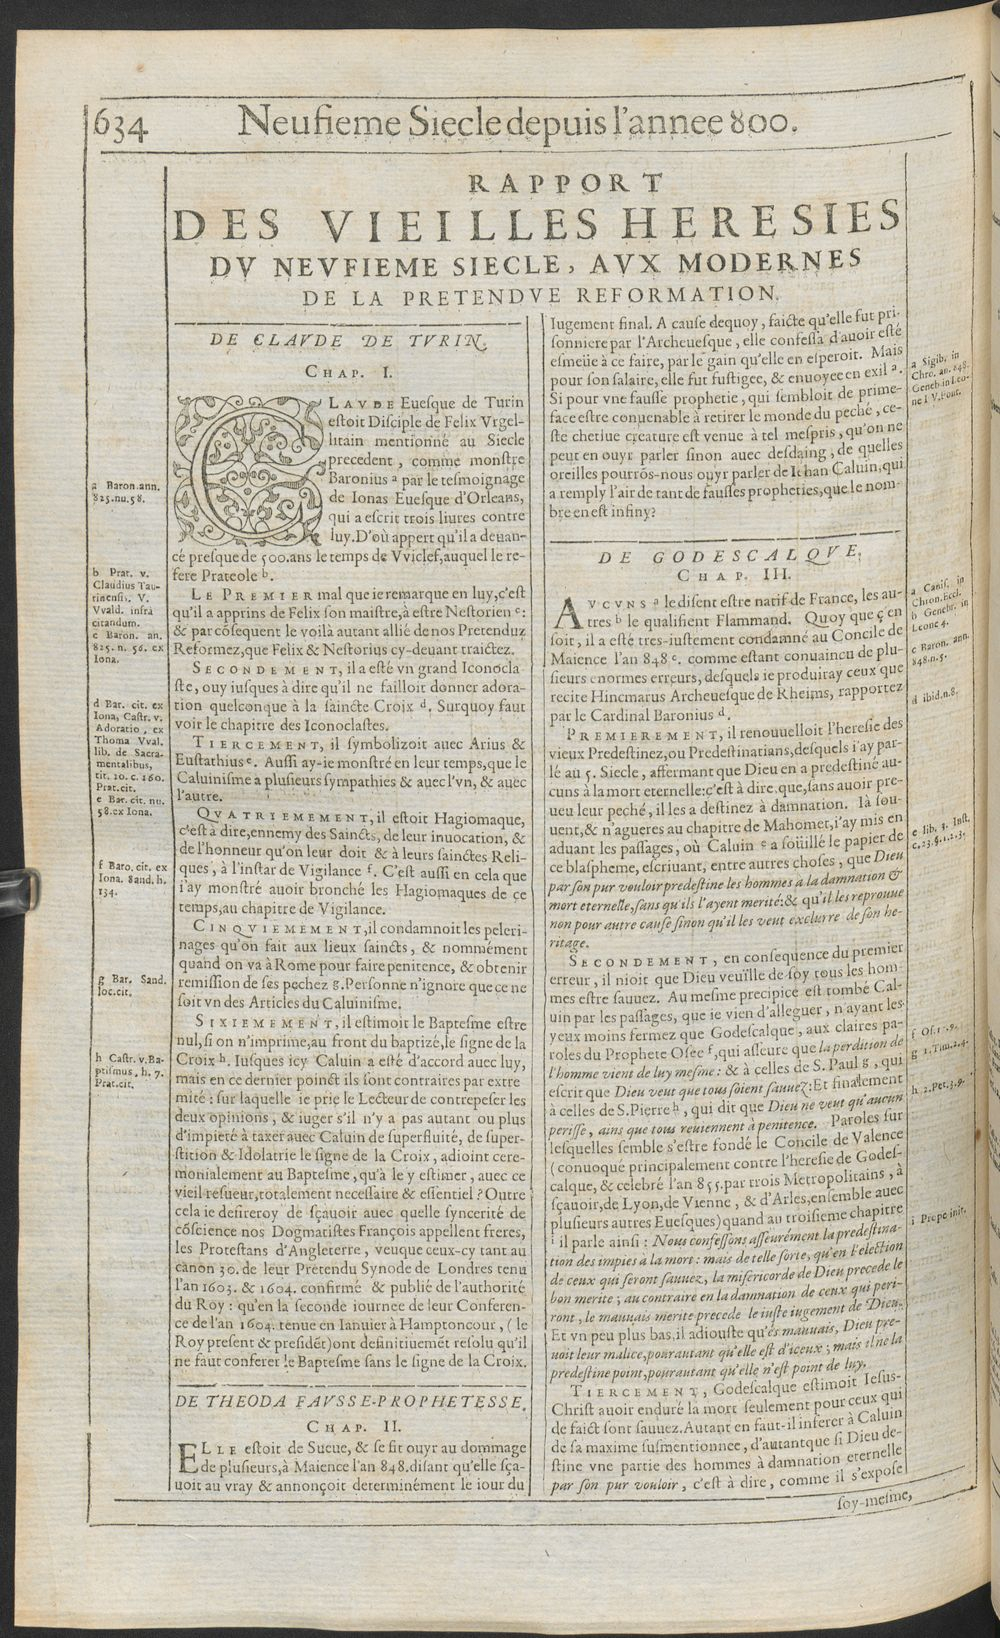 634 Neufieme Siecle depuis l'annee 800.
RAPPORT
DES VIEILLES HERESIES
DV NEVFIEME SIECLE, AVX MODERNES
DE LA PRETENDVE REFORMATION.
DE CLAVDE DE TVRIN.
CHAP. I.
CLAVDE Euesque de Turin
estoit Disciple de Felix Vrgel-
litain mentionné au Siecle
precedent, comme monstre
Baronius a par le tesmoignage
de Ionas Euesque d'Orleans,
qui a escrit trois liures contre
luy. D'où appert qu'il a deuan-
cé presque de 500. ans le temps de Vviclef, auquel le re-
fere Prateole b.
LE PREMIER mal que ie remarque en luy, c'est
qu'il a apprins de Felix son maistre, à estre Nestorien c:
& par cõsequent le voilà autant allié de nos Pretenduz
Reformez, que Felix & Nestorius cy-deuant traictez.
SECONDEMENT, il a esté vn grand Iconocla
ste, ouy iusques à dire qu'il ne failloit donner adora-
tion quelconque à la saincte Croix d. Surquoy faut
voir le chapitre des Iconoclastes.
TIERCEMENT, il symbolizoit auec Arius &
Eustathius e. Aussi ay-ie monstré en leur temps, que le
Caluinisme a plusieurs sympathies & auec l'vn, & auec
l'autre.
QVATRIEMEMENT, il estoit Hagiomaque,
c'est à dire, ennemy des Saincts, de leur inuocation, &
de l'honneur qu'on leur doit & à leurs sainctes Reli-
ques, à l'instar de Vigilance f. C'est aussi en cela que
i'ay monstré auoir bronché les Hagiomaques de ce
temps, au chapitre de Vigilance.
CINQVIEMEMENT, il condamnoit les peleri-
nages qu'on fait aux lieux saincts, & nommément
quand on va à Rome pour faire penitence, & obtenir
remission de ses pechez g. Personne n'ignore que ce ne
soit vn des Articles du Caluinisme.
SIXIEMEMENT, il estimoit le Baptesme estre
nul, si on n'imprime, au front du baptizé, le signe de la
Croix h. Iusques icy Caluin a esté d'accord auec luy,
mais en ce dernier poinct ils sont contraires par extre
mité: sur laquelle ie prie le Lecteur de contrepeser les
deux opinions, & iuger s'il n'y a pas autant ou plus
d'impieté à taxer auec Caluin de superfluité, de super-
stition & Idolatrie le signe de la Croix, adioint cere-
monialement au Baptesme, qu'à le y estimer, auec ce
vieil resueur, totalement necessaire & essentiel? Outre
cela ie desireroy de sçauoir auec quelle synceritė de
cõscience nos Dogmatistes François appellent freres,
les Protestans d'Angleterre, veuque ceux-cy tant au
canon 30. de leur Pretendu Synode de Londres tenu
l'an 1603. & 1604. confirmé & publié de l'authorité
du Roy: qu'en la seconde iournee de leur Conferen-
ce de l'an 1604. tenue en Ianuier à Hamptoncour, (le
Roy present & presidẽt) ont definitiuemẽt resolu qu'il
ne faut conferer le Baptesme sans le signe de la Croix.
DE THEODA FAVSSE-PROPHETESSE.
CHAP. II.
ELLE estoit de Sueue, & se fit ouyr au dommage
de plusieurs, à Maience l'an 848. disant qu'elle sça-
uoit au vray & annonçoit determinément le iour du
a Baron. ann.
825. nu. 58.
b Prat. v.
Claudius Tau-
rinensis. V.
Vvald. infrà
citandum.
c Baron. an.
825. n. 56. ex
Iona.
d Bar. cit. ex
Iona, Castr. v.
Adoratio, ex
Thoma Vval.
lib. de Sacra-
mentalibus,
tit. 20. c. 160.
Prat. cit.
e Bar. cit. nu.
58. ex Iona.
f Baro. cit. ex
Iona. Sand. h.
134.
g Bar. Sand.
loc. cit.
h Castr. v. Ba-
ptismus, h. 7.
Prat. cit.
Iugement final. A cause dequoy, faicte qu'elle fut pri-
sonniere par l'Archeuesque, elle confessa d'auoir esté
esmeüe à ce faire, par le gain qu'elle en esperoit. Mais
pour son salaire, elle fut fustigee, & enuoyee en exil a.
Si pour vne fausse prophetie, qui sembloit de prime-
face estre conuenable à retirer le monde du peché, ce-
ste chetiue creature est venue à tel mespris, qu'on ne
peut en ouyr parler sinon auec desdaing, de quelles
oreilles pourrõs-nous ouyr parler de Iehan Caluin, qui
a remply l'air de tant de fausses propheties, que le nom-
bre en est infiny?
DE GODESCALQVE.
CHAP. III.
AVCVNS a le disent estre natif de France, les au-
tres b le qualifient Flammand. Quoy que ç'en
soit, il a esté tres-iustement condamné au Concile de
Maience l'an 848 c. comme estant conuaincu de plu-
sieurs enormes erreurs, desquels ie produiray ceux que
recite Hincmarus Archeuesque de Rheims, rapportez
par le Cardinal Baronius d.
PREMIEREMENT, il renouuelloit l'heresie des
vieux Predestinez, ou Predestinatians, desquels i'ay par-
lé au 5. Siecle, affermant que Dieu en a predestiné au-
cuns à la mort eternelle: c'est à dire, que, sans auoir pre-
ueu leur peché, il les a destinez à damnation. Ià sou-
uent, & n'agueres au chapitre de Mahomet, i'ay mis en
aduant les passages, où Caluin e a soüillé le papier de
ce blaspheme, escriuant, entre autres choses, que Dieu
par son pur vouloir predestine les hommes à la damnation &
mort eternelle, sans qu'ils l'ayent merité: & qu'il les reprouue
non pour autre cause sinon qu'il les veut exclurre de son he-
ritage.
SECONDEMENT, en consequence du premier
erreur, il nioit que Dieu veuille de soy tous les hom-
mes estre sauuez. Au mesme precipice est tombé Cal-
uin par les passages, que ie vien d'alleguer, n'ayant les
yeux moins fermez que Godescalque, aux claires pa-
roles du Prophete Osée f, qui asseure que la perdition de
l'homme vient de luy mesme: & à celles de S. Paul g, qui
escrit que Dieu veut que tous soient sauuez: Et finalement
à celles de S. Pierre h, qui dit que Dieu ne veut qu'aucun
perisse, ains que tous reuiennent à penitence. Paroles sur
lesquelles semble s'estre fondé le Concile de Valence
(conuoqué principalement contre l'heresie de Godes-
calque, & celebré l'an 855. par trois Metropolitains, à
sçauoir, de Lyon, de Vienne, & d'Arles, ensemble auec
plusieurs autres Euesques) quand au troisieme chapitre
i il parle ainsi: Nous confessons asseurément la predestina-
tion des impies à la mort: mais de telle sorte, qu'en l'election
de ceux qui seront sauuez, la misericorde de Dieu precede le
bon merite; au contraire en la damnation de ceux qui peri-
ront, le mauuais merite precede le iuste iugement de Dieu.
Et vn peu plus bas, il adiouste qu'és mauuais, Dieu pre-
uoit leur malice, pourautant qu'elle est d'iceux; mais il ne la
predestine point, pourautant qu'elle n'est point de luy.
TIERCEMENT, Godescalque estimoit Iesus-
Christ auoir enduré la mort seulement pour ceux qui
de faict sont sauuez. Autant en faut-il inferer à Caluin
de sa maxime susmentionnee, d'autantque si Dieu de-
stine vne partie des hommes à damnation eternelle
par son pur vouloir, c'est à dire, comme il s'expose
soy-mesme,
a Sigib. in
Chro. an. 848.
Geneb. in Leo-
ne IV. Pont.
a Canis. in
Chron. Eccl.
b Genebr. in
Leone 4.
c Baron. ann.
848. n. 5.
d ibid. n. 8.
e lib. 3. Inst.
c. 23. §. 1. 2. 3.
g 1. Tim. 2. 4.
h 2. Pet. 3. 9.